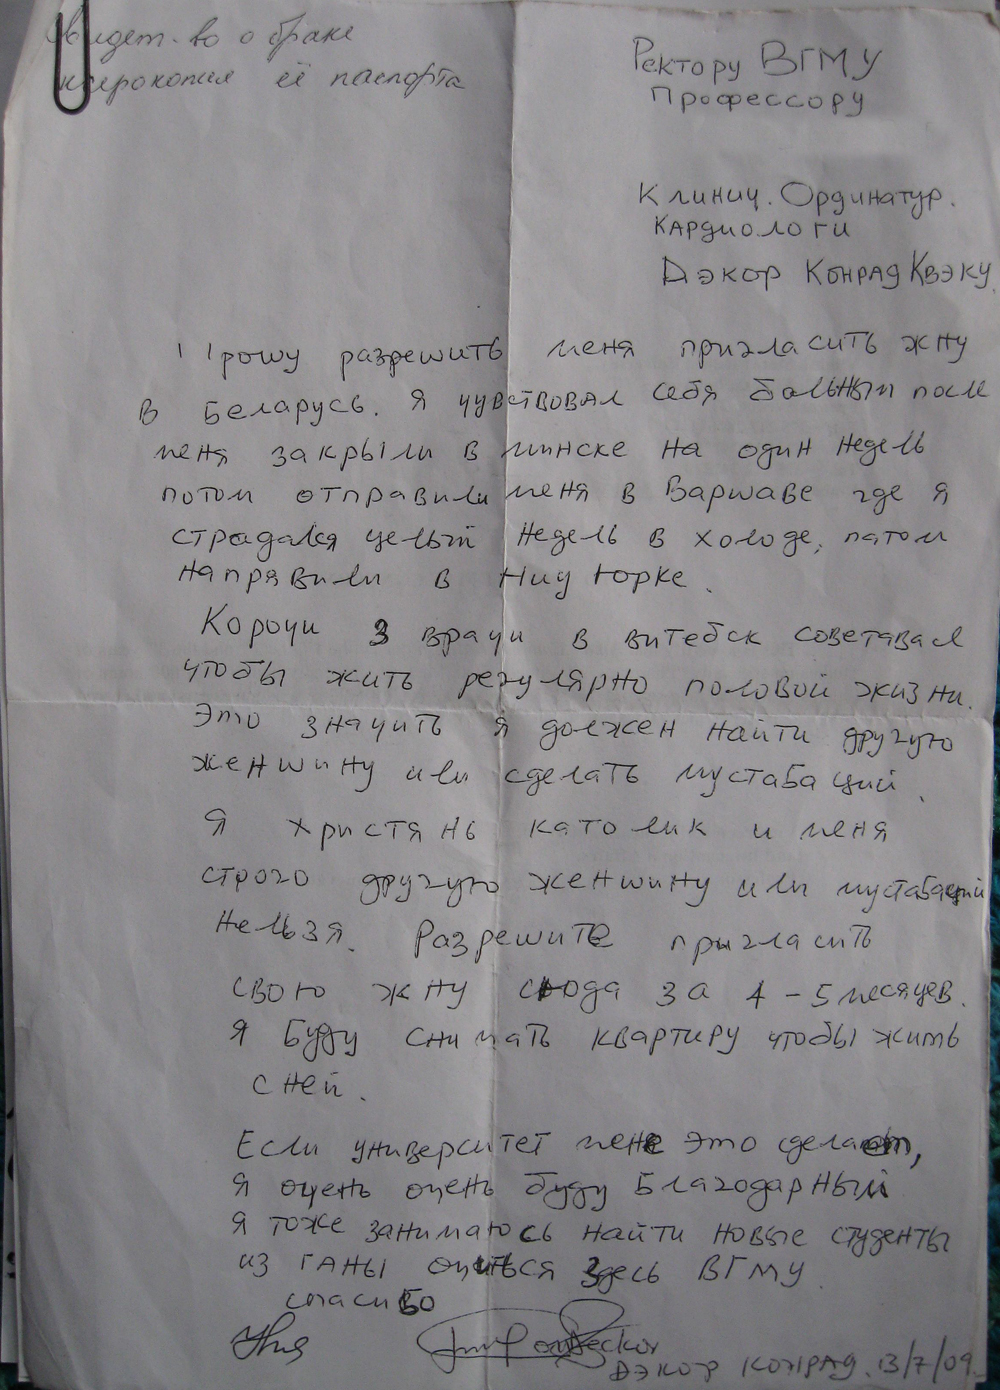 Свидет-во о браке
ксерокопия её паспорта
Ректору ВГМУ
Профессору
Клинич. Ординатур.
Кардиологи
Дэкор Конрад Квэку
Прошу разрешить меня пригласить жну
в Беларусь. Я чувствовал себя больным после
меня закрыли в минске на один недель
потом отправили меня в Варшаве где я
страдался целый недель в холоде, патом
напрявили в Ниу Юрке.
Корочи 3 врачи в витебск советавал
чтобы жить регулярно половой жизни.
Это значить я должен найти другую
женшину или сделать мустабаций.
Я христянь католик и меня
строго другую женшину или мустабаций
нельзя. Разрешите пригласить
свою жну сюда за 4-5 месяцев.
Я буду снимать квартиру чтобы жить
с ней.
Если университет мене это сделает,
я очень очень буду благодарный
я тоже занимаюсь найти новые студенты
из ганы очиться здесь ВГМУ.
спасибо
Дэкор Конрад. 13/7/09.